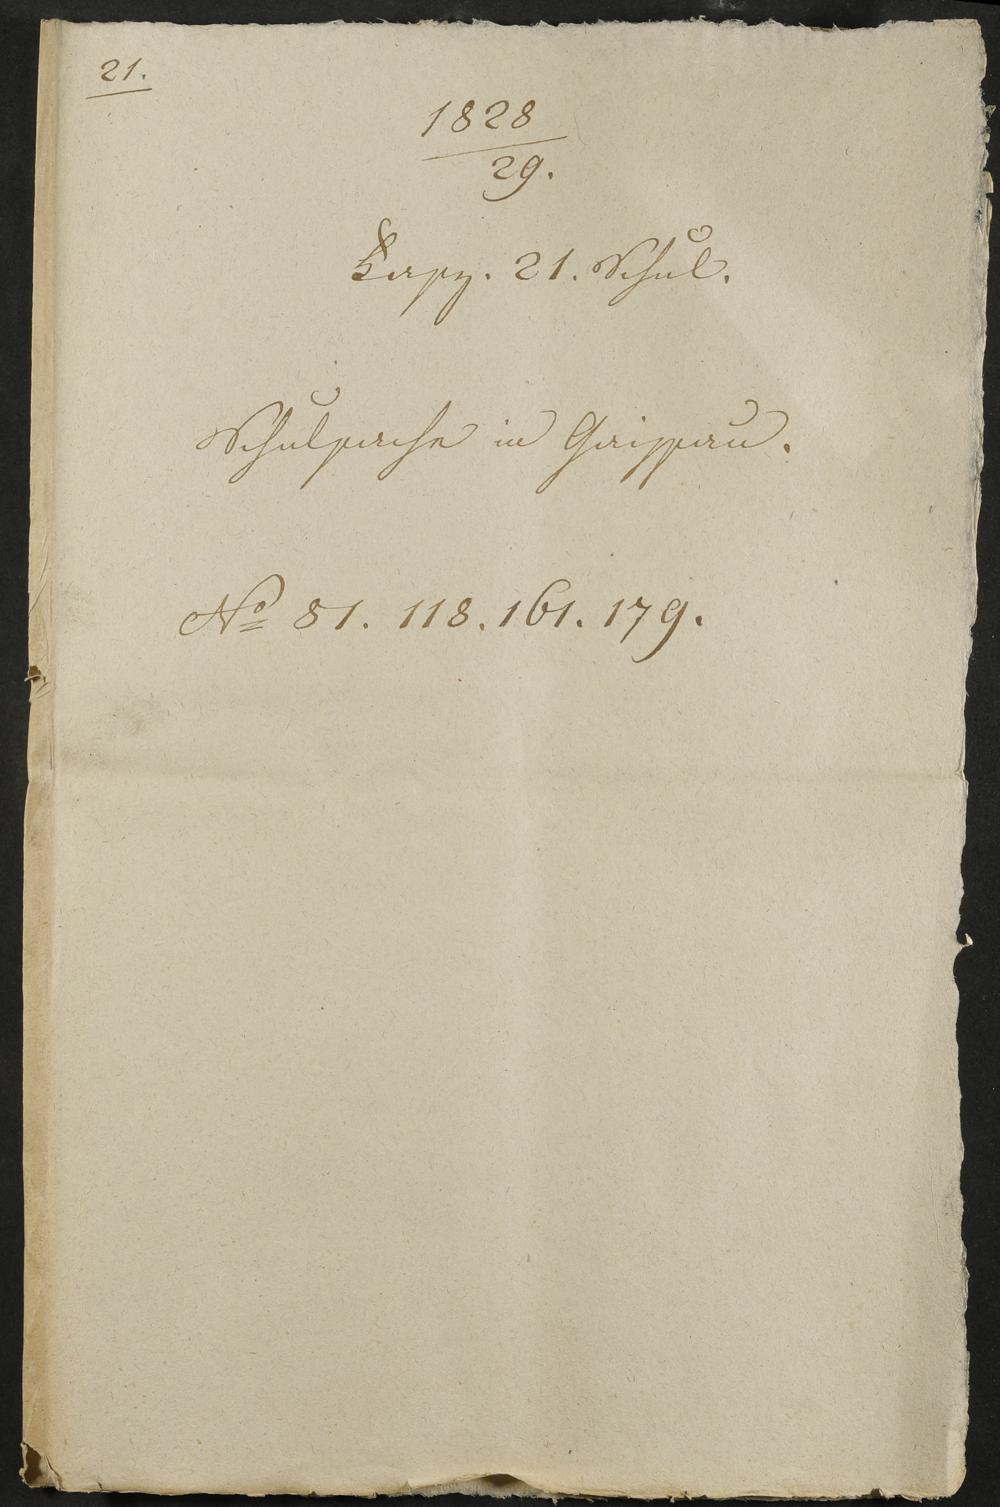 21.
1828
29.
Fasz. 21. Schul.
Schulsache in Gaissau.
No 81. 118. 161. 179.